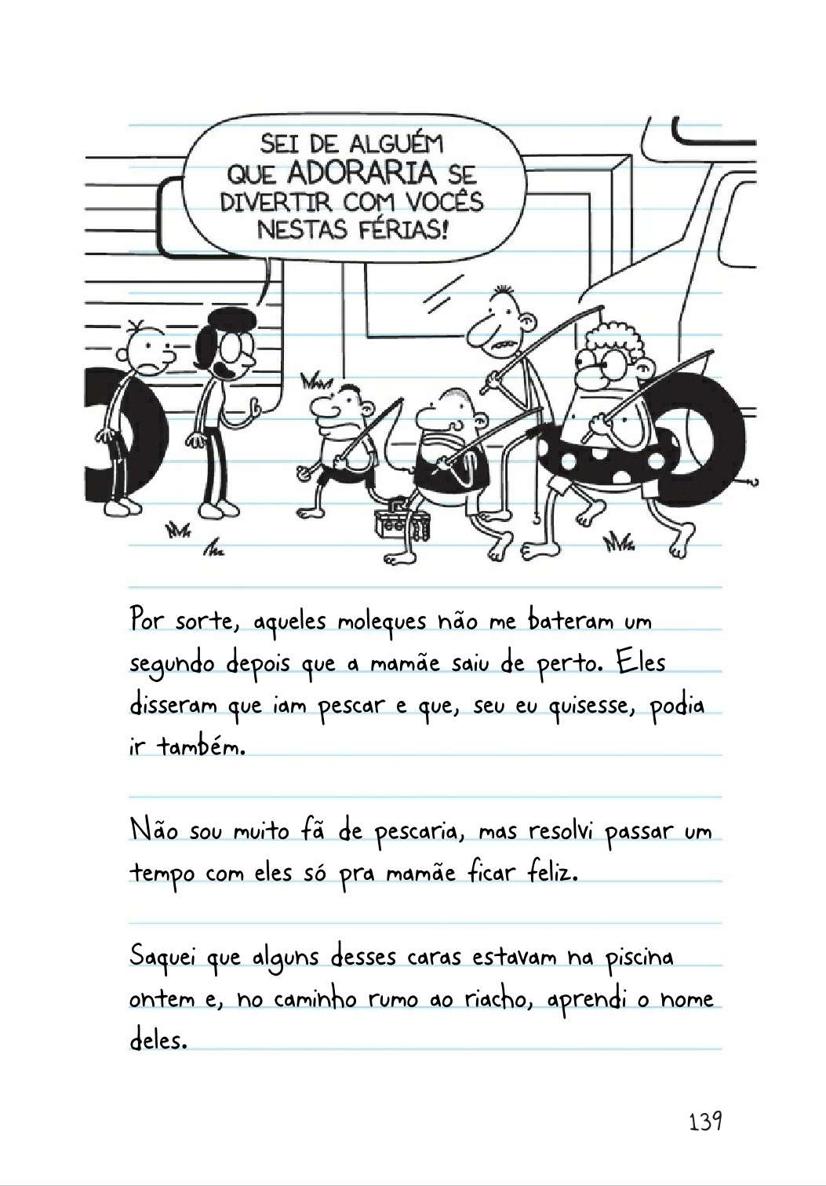 SEI DE ALGUÉM
QUE ADORARIA SE
DIVERTIR COM VOCÊS
NESTAS FÉRIAS!
Por sorte, aqueles moleques não me bateram um
segundo depois que a mamãe saiu de perto. Eles
disseram que iam pescar e que, seu eu quisesse, podia
ir também.
Não sou muito fã de pescaria, mas resolvi passar um
tempo com eles só pra mamãe ficar feliz.
Saquei que alguns desses caras estavam na piscina
ontem e, no caminho rumo ao riacho, aprendi o nome
deles.
139